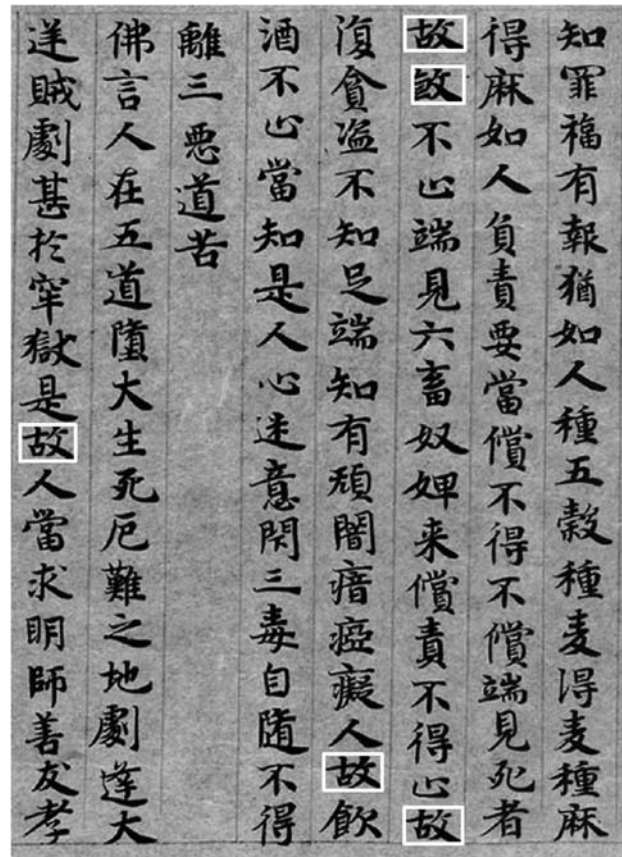 知罪福有報猶如人種五穀種麦得麦種麻
得麻如人負責要當償不得不償端見死者
故不止端見六畜奴婢来償責不得止故
復貪盗不知足端知有頑闇瘖瘂癡人故飲
酒不止當知是人心迷意閇三毒自墮不得
離三悪道苦
佛言人在五道墮大生死厄難之地劇逢大
逆賊劇甚於牢獄是故人當求眀師善友孝